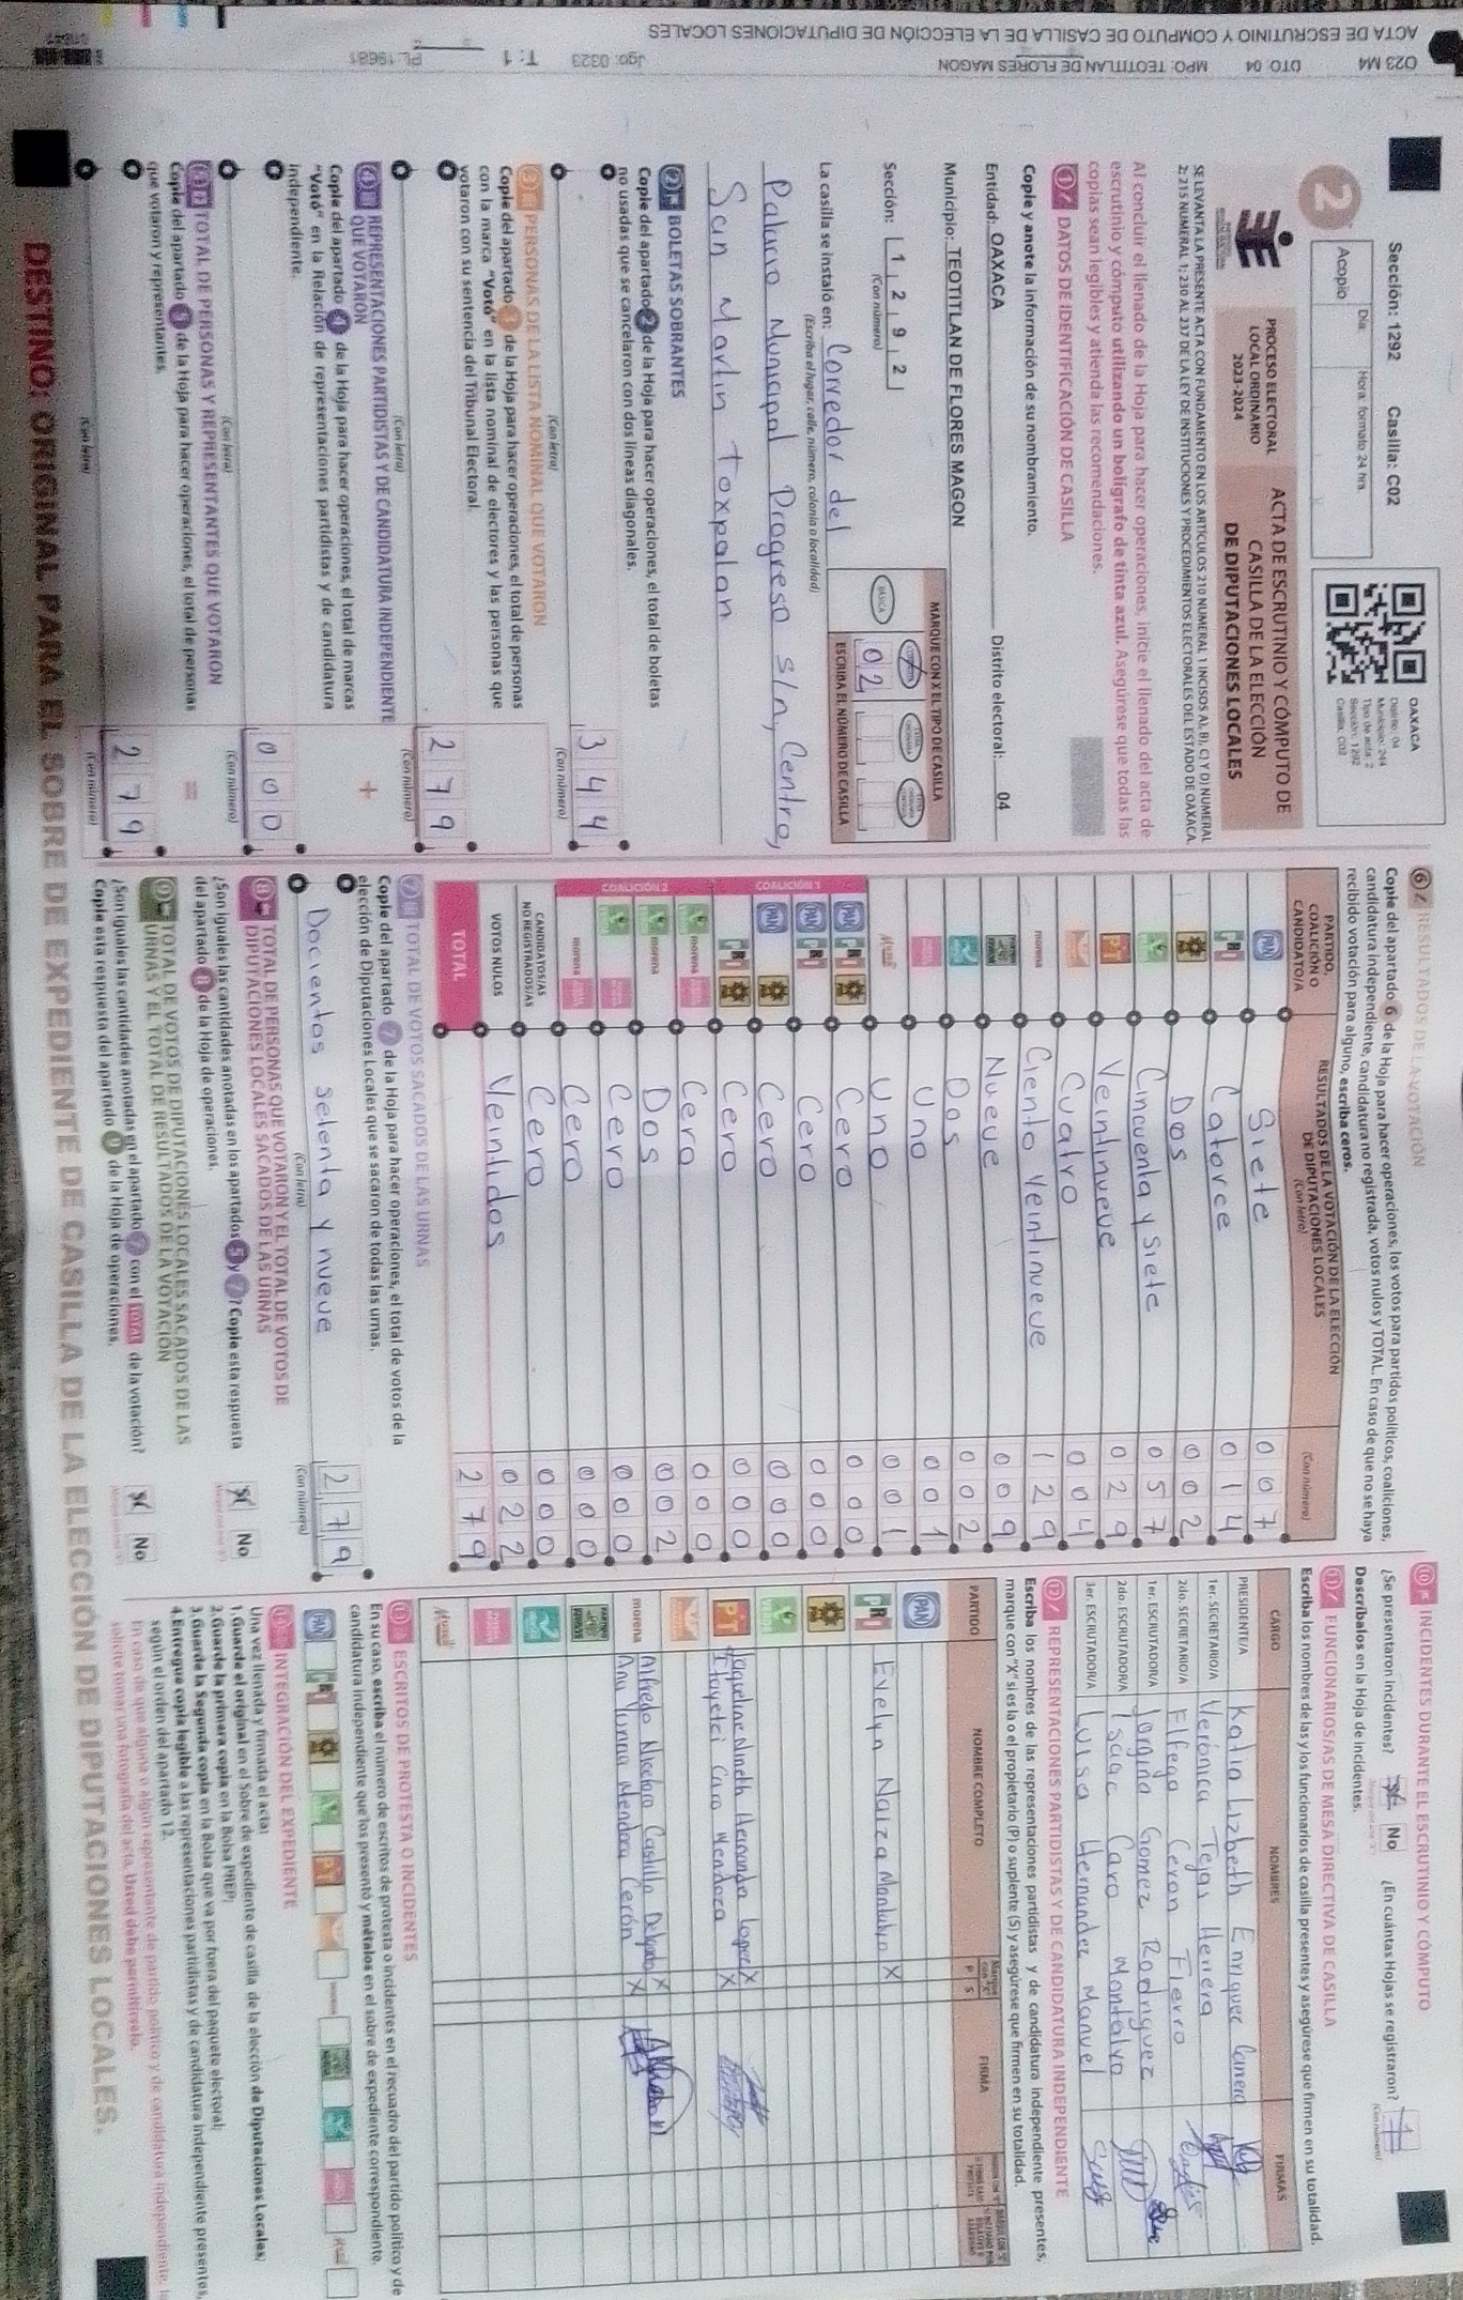 Sección: 1292 Casilla: C02
Acopio
Día:
Hora: formato 24 hrs.
OAXACA
Distrito: 04
Municipio: 244
Tipo de acta: 2
Sección: 1292
Casilla: C02
2
PROCESO ELECTORAL
LOCAL ORDINARIO
2023-2024
ACTA DE ESCRUTINIO Y CÓMPUTO DE
CASILLA DE LA ELECCIÓN
DE DIPUTACIONES LOCALES
SE LEVANTA LA PRESENTE ACTA CON FUNDAMENTO EN LOS ARTÍCULOS 210 NUMERAL 1 INCISOS A), B), C) Y D) NUMERAL
2; 215 NUMERAL 1; 230 AL 237 DE LA LEY DE INSTITUCIONES Y PROCEDIMIENTOS ELECTORALES DEL ESTADO DE OAXACA.
Al concluir el llenado de la Hoja para hacer operaciones, inicie el llenado del acta de
escrutinio y cómputo utilizando un bolígrafo de tinta azul. Asegúrese que todas las
copias sean legibles y atienda las recomendaciones.
1 DATOS DE IDENTIFICACIÓN DE CASILLA
Copie y anote la información de su nombramiento.
Entidad: OAXACA Distrito electoral: 04
Municipio: TEOTITLAN DE FLORES MAGON
Sección: 1 2 9 2
(Con número)
MARQUE CON X EL TIPO DE CASILLA
BÁSICA
02
ESCRIBA EL NÚMERO DE CASILLA
La casilla se instaló en: Corredor del
(Escriba el lugar, calle, número, colonia o localidad)
Palacio Municipal Progreso s/n, Centro,
San Martin Toxpalan
2 BOLETAS SOBRANTES
Copie del apartado 2 de la Hoja para hacer operaciones, el total de boletas
no usadas que se cancelaron con dos líneas diagonales.
344
(Con letra) (Con número)
3 PERSONAS DE LA LISTA NOMINAL QUE VOTARON
Copie del apartado 3 de la Hoja para hacer operaciones, el total de personas
con la marca "Votó" en la lista nominal de electores y las personas que
votaron con su sentencia del Tribunal Electoral.
279
(Con letra) (Con número)
4 REPRESENTACIONES PARTIDISTAS Y DE CANDIDATURA INDEPENDIENTE
QUE VOTARON
+
Copie del apartado 4 de la Hoja para hacer operaciones, el total de marcas
"Votó" en la Relación de representaciones partidistas y de candidatura
independiente.
000
(Con letra) (Con número)
5 TOTAL DE PERSONAS Y REPRESENTANTES QUE VOTARON
=
Copie del apartado 5 de la Hoja para hacer operaciones, el total de personas
que votaron y representantes.
279
(Con letra) (Con número)
6 RESULTADOS DE LA VOTACIÓN
Copie del apartado 6 de la Hoja para hacer operaciones, los votos para partidos políticos, coaliciones,
candidatura independiente, candidatura no registrada, votos nulos y TOTAL. En caso de que no se haya
recibido votación para alguno, escriba ceros.
PARTIDO,
COALICIÓN O
CANDIDATO/A
RESULTADOS DE LA VOTACIÓN DE LA ELECCIÓN
DE DIPUTACIONES LOCALES
(Con letra)
(Con número)
PAN Siete 007
PRI Catorce 014
PRD Dos 002
VERDE Cincuenta y Siete 057
PT Veintinueve 029
Cuatro 004
morena Ciento Veintinueve 129
Nueve 009
Dos 002
Uno 001
Uno 001
COALICIÓN 1
PAN PRI PRD Cero 000
PAN PRI Cero 000
PAN PRD Cero 000
PRI PRD Cero 000
COALICIÓN 2
morena Cero 000
morena Dos 002
Cero 000
morena Cero 000
CANDIDATOS/AS
NO REGISTRADOS/AS Cero 000
VOTOS NULOS Veintidos 022
TOTAL 279
7 TOTAL DE VOTOS SACADOS DE LAS URNAS
Copie del apartado 7 de la Hoja para hacer operaciones, el total de votos de la
elección de Diputaciones Locales que se sacaron de todas las urnas.
Docientos setenta y nueve 279
(Con letra) (Con número)
8 TOTAL DE PERSONAS QUE VOTARON Y EL TOTAL DE VOTOS DE
DIPUTACIONES LOCALES SACADOS DE LAS URNAS
¿Son iguales las cantidades anotadas en los apartados 5 y 7? Copie esta respuesta
del apartado 8 de la Hoja de operaciones.
Sí No
9 TOTAL DE VOTOS DE DIPUTACIONES LOCALES SACADOS DE LAS
URNAS Y EL TOTAL DE RESULTADOS DE LA VOTACIÓN
¿Son iguales las cantidades anotadas en el apartado 7 con el TOTAL de la votación?
Copie esta respuesta del apartado 9 de la Hoja de operaciones.
Sí No
10 INCIDENTES DURANTE EL ESCRUTINIO Y CÓMPUTO
¿Se presentaron incidentes? Sí No ¿En cuántas Hojas se registraron? 1
Descríbalos en la Hoja de incidentes.
11 FUNCIONARIOS/AS DE MESA DIRECTIVA DE CASILLA
Escriba los nombres de las y los funcionarios de casilla presentes y asegúrese que firmen en su totalidad.
CARGO NOMBRES FIRMAS
PRESIDENTE/A Katia Lizbeth Enriquez
1er. SECRETARIO/A Verónica Tejas Herrera
2do. SECRETARIO/A Elfego Ceron Fierro
1er. ESCRUTADOR/A Jorgina Gomez Rodriguez
2do. ESCRUTADOR/A Isaac Caro Montalvo
3er. ESCRUTADOR/A Luisa Hernandez Manuel
12 REPRESENTACIONES PARTIDISTAS Y DE CANDIDATURA INDEPENDIENTE
Escriba los nombres de las representaciones partidistas y de candidatura independiente presentes,
marque con "X" si es la o el propietario (P) o suplente (S) y asegúrese que firmen en su totalidad.
PARTIDO NOMBRE COMPLETO P S FIRMA
PAN
PRI Evelyn Naiza Montalvo X
PRD
VERDE
PT Jaqueline Nineth Hernandez Lopez X
Itayetci Caro Mendoza X
morena Alfredo Niceforo Castillo Delgado X
Ana Yunna Mendoza Cerón X
13 ESCRITOS DE PROTESTA O INCIDENTES
En su caso, escriba el número de escritos de protesta o incidentes en el recuadro del partido político y de
candidatura independiente que los presentó y métalos en el sobre de expediente correspondiente.
14 INTEGRACIÓN DEL EXPEDIENTE
Una vez llenada y firmada el acta:
1. Guarde el original en el Sobre de expediente de casilla de la elección de Diputaciones Locales;
2. Guarde la primera copia en la Bolsa PREP;
3. Guarde la Segunda copia en la Bolsa que va por fuera del paquete electoral;
4. Entregue copia legible a las representaciones partidistas y de candidatura independiente presentes,
según el orden del apartado 12.
En caso de que alguna o algún representante de partido político y de candidatura independiente, le
solicite tomar una fotografía del acta, Usted debe permitírselo.
DESTINO: ORIGINAL PARA EL SOBRE DE EXPEDIENTE DE CASILLA DE LA ELECCIÓN DE DIPUTACIONES LOCALES.
023 M4 DTO: 04 MPO: TEOTITLAN DE FLORES MAGON Jgo: 0323 T: 1 PL: 19681
ACTA DE ESCRUTINIO Y COMPUTO DE CASILLA DE LA ELECCIÓN DE DIPUTACIONES LOCALES